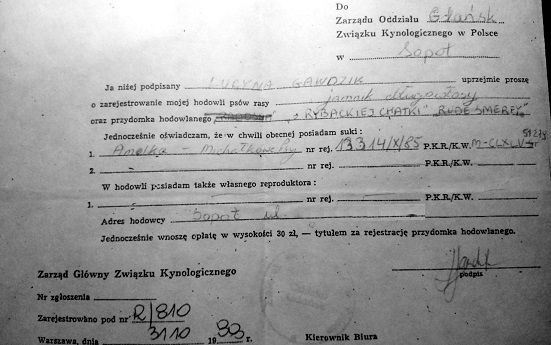 Do
Zarządu Oddziału Gdańsk
Związku Kynologicznego w Polsce
w Sopot
Ja niżej podpisany LUCYNA GAWDZIK uprzejmie proszę
o zarejestrowanie mojej hodowli psów rasy jamnik długowłosy
oraz przydomka hodowlanego "Z RYBACKIEJ CHATKI" RUDE SMERFY"
Jednocześnie oświadczam, że w chwili obecnej posiadam suki:
1. Amelka – nr rej. 13314/X/85 P.K.R./K.W.
2. nr rej. P.K.R./K.W.
W hodowli posiadam także własnego reproduktora:
1. nr rej. P.K.R./K.W.
Adres hodowcy Sopot ul
Jednocześnie wnoszę opłatę w wysokości 30 zł, — tytułem za rejestrację przydomka hodowlanego.
podpis
Zarząd Główny Związku Kynologicznego
Nr zgłoszenia
Zarejestrowano pod nr R/810
Warszawa, dnia 3110 19 r.
Kierownik Biura